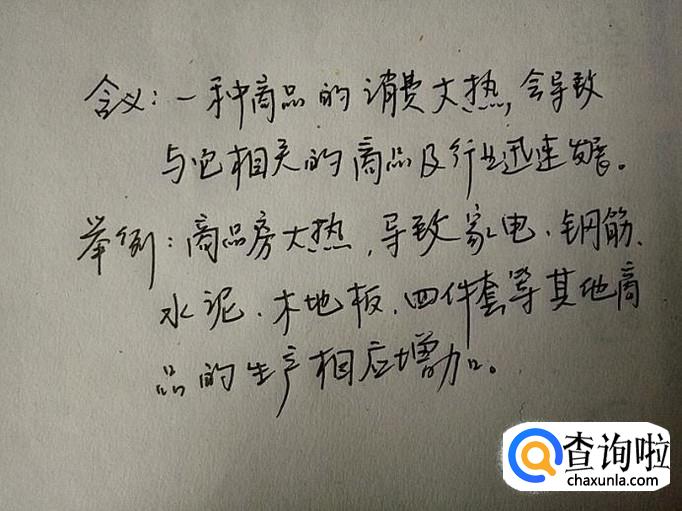 含义：一种商品的消费大热，会导致
与它相关的商品及行业迅速发展。
举例：商品房大热，导致家电、钢筋、
水泥、木地板、四件套等其他商
品的生产相应增加。
查询啦
chaxunla.com